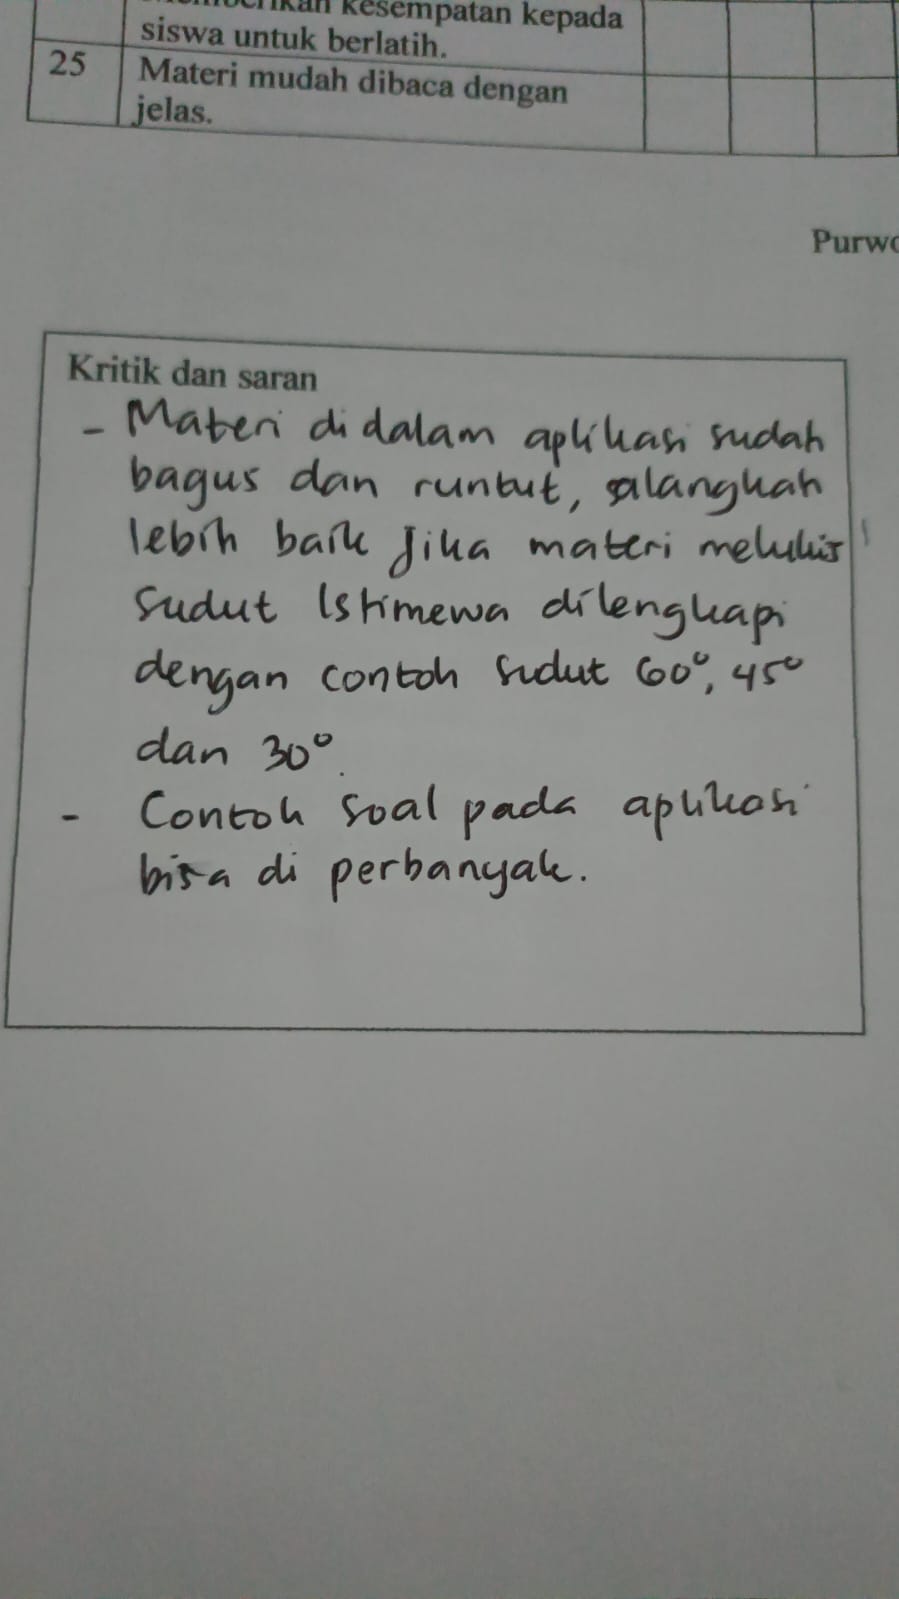 kesempatan kepada
siswa untuk berlatih.
25 Materi mudah dibaca dengan
jelas.
Kritik dan saran
- Materi didalam aplikasi sudah
bagus dan runtut, alangkah
lebih baik Jika materi melukis
sudut Istimewa dilengkapi
dengan contoh sudut 60°, 45°
dan 30°.
- Contoh soal pada aplikasi
bisa di perbanyak.